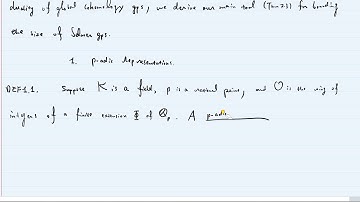 duality of global cohomology gps, we derive our main tool (Thm 7.3) for bounding
the size of Selmer gps.
1. p-adic Representations.
DEF 1.1. Suppose K is a field, p is a rational prime, and O is the ring of
integers of a finite extension Φ of ℚp. A p-adic